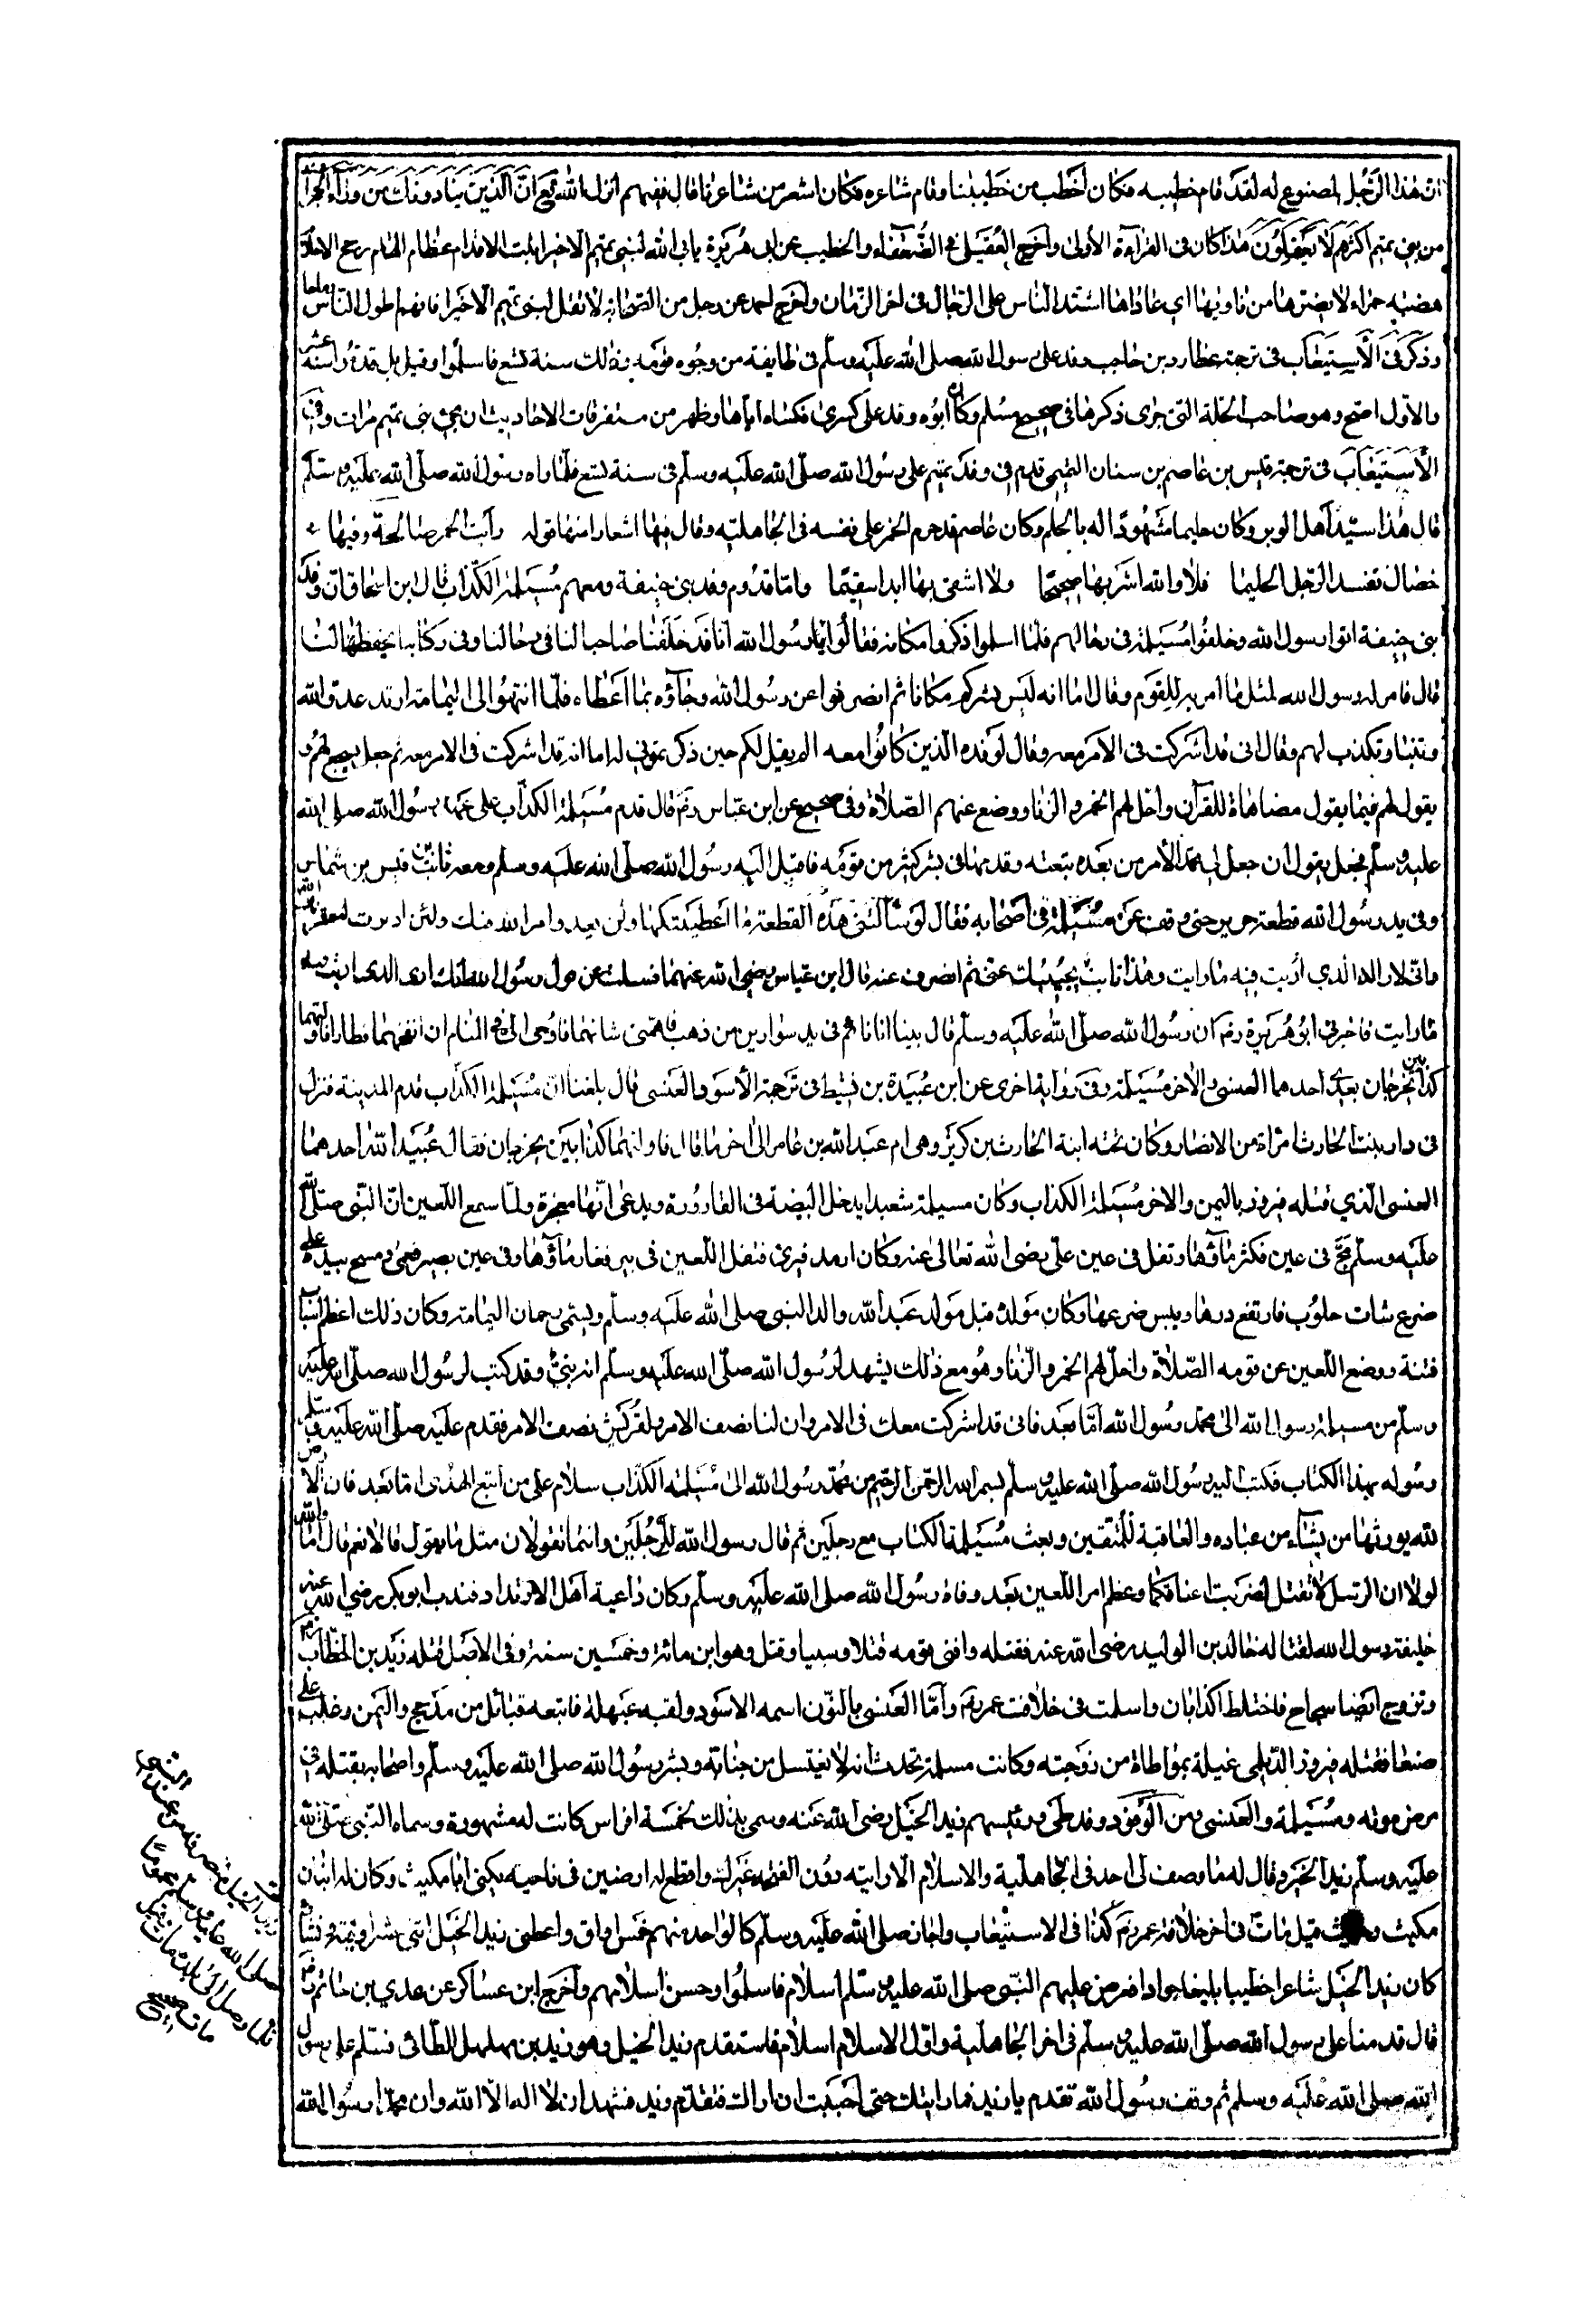 ان هذا الرجل لمصنوع له لقد قام خطيبه فكان اخطب من خطيبنا وقام شاعره فكان اشعر من شاعرنا قال ففيهم انزل الله تع ان الذين ينادونك من وراء الحجرات
من بنى تميم اكثرهم لا يعقلون هذا كان فى القراءة الاولى واخرج العقيلى فى الضعفاء والخطيب عن ابى هريرة يابى الله لبنى تميم الا خيرا ثبت الاقدام عظام الهام رجح الاحلام
هضبه حمراء لا يضرها من ناويها اى عاداها اشد الناس على الدجال فى اخر الزمان واخرج احمد عن رجل من الصحابة لا تقل لبنى تميم الا خيرا فانهم اطول الناس رماحا
وذكر فى الاستيعاب فى ترجمة عطارد بن حاجب وفد على رسول الله صلى الله عليه وسلم فى طايفة من وجوه قومه وذلك سنة تسع فاسلموا وقيل بل قدموا سنة عشر
والاول اصح وهو صاحب الحلة التى جرى ذكرها فى صحيح مسلم وكان ابوه وفد على كسرى فكساه اياها وظهر من متفرقات الاحاديث ان مجئ بنى تميم مرات وفى
الاستيعاب فى ترجمة قيس بن عاصم بن سنان التميمى قدم فى وفد تميم على رسول الله صلى الله عليه وسلم فى سنة تسع فلما راه رسول الله صلى الله عليه وسلم
قال هذا سيد اهل الوبر وكان حليما مشهودا له بالحلم وكان عاصم قد حرم الخمر على نفسه فى الجاهلية وقال فيها اشعارا منها قوله رايت الخمر صالحة وفيها
خصال تفسد الرجل الحليما فلا والله اشربها صحيحا ولا اشفى بها ابدا سقيما واما قدوم وفد بنى حنيفة ومعهم مسيلمة الكذاب قال ابن اسحاق ان وفد
بنى حنيفة اتوا رسول الله وخلفوا مسيلمة فى رحالهم فلما اسلموا ذكروا مكانه فقالوا يا رسول الله انا قد خلفنا صاحبا لنا فى رحالنا وفى ركابنا يحفظها لنا
قال فامر له رسول الله لمثل ما امر به للقوم وقال اما انه ليس بشركم مكانا ثم انصرفوا عن رسول الله وجاؤه بما اعطاه فلما انتهوا الى اليمامة ارتد عدو الله
وتنبا وتكذب لهم وقال انى قد اشركت فى الامر معه وقال لوفده الذين كانوا معه الم يقل لكم حين ذكرتمونى له اما انه قد اشركت فى الامر معه ثم جعل يسجع لهم و
يقول لهم فيما يقول مضاهاة للقرآن واحل لهم الخمر والزنا ووضع عنهم الصلاة وفى صحيح عن ابن عباس رضم قال قدم مسيلمة الكذاب على عهد رسول الله صلى الله
عليه وسلم فجعل يقول ان جعل لى محمد الامر من بعده تبعته وقدمها فى بشر كثير من قومه فاقبل اليه رسول الله صلى الله عليه وسلم ومعه ثابت بن قيس بن شماس
وفى يد رسول الله قطعة جريد حتى وقف عن مسيلمة فى اصحابه فقال لو سالتنى هذه القطعة ما اعطيتكها ولن يعدو امر الله فيك ولئن ادبرت ليعقرنك الله
وانى لاراك الذى اريت فيه ما رايت وهذا ثابت يجيبك عنى ثم انصرف عنه قال ابن عباس رضى الله عنهما فسئلت عن قول رسول الله انك ارى الذى اريت فيه
ما رايت فاخبرنى ابو هريرة رضم ان رسول الله صلى الله عليه وسلم قال بينا انا نائم فى يد سوارين من ذهب فاهمنى شانهما فاوحى الى فى المنام ان انفخهما فطارا فاولتهما
كذابين يخرجان بعدى احدهما العنسى والاخر مسيلمة وفى رواية اخرى عن ابن عبيدة بن نشيط فى ترجمة الاسود العنسى قال بلغنا ان مسيلمة الكذاب قدم المدينة فنزل
فى دار بنت الحارث امراة من الانصار وكان تحته ابنة الحارث بن كريز وهى ام عبد الله بن عامر الى اخر ما قال فاولتهما كذابين يخرجان فقال عبيد الله احدهما
العنسى الذى قتله فيروز باليمن والاخر مسيلمة الكذاب وكان مسيلمة شعبدا يدخل البيضة فى القارورة ويدعى انها معجزة ولما سمع اللعين ان النبى صلى الله
عليه وسلم مج فى عين فكثر ماؤها وتفل فى عين على رضى الله تعالى عنه وكان ارمد فبرئ فتفل اللعين فى بير فغار ماؤها وفى عين بصير فعمى ومسح بيده على
ضرع شات حلوب فارتفع درها ويبس ضرعها وكان مولده قبل مولد عبد الله والد النبى صلى الله عليه وسلم ويسمى رحمان اليمامة وكان ذلك اعظم
فتنة ووضع اللعين عن قومه الصلاة واحل لهم الخمر والزنا وهو مع ذلك يشهد لرسول الله صلى الله عليه وسلم انه نبى وقد كتب لرسول الله صلى الله عليه
وسلم من مسيلمة رسول الله الى محمد رسول الله اما بعد فانى قد اشركت معك فى الامر وان لنا نصف الامر ولقريش نصف الامر فقدم عليه صلى الله عليه وسلم
رسوله بهذا الكتاب فكتب اليه رسول الله صلى الله عليه وسلم بسم الله الرحمن الرحيم من محمد رسول الله الى مسيلمة الكذاب سلام على من اتبع الهدى اما بعد فان الارض
لله يورثها من يشاء من عباده والعاقبة للمتقين وبعث مسيلمة الكتاب مع رجلين ثم قال رسول الله للرجلين وانتما تقولان مثل ما يقول قالا نعم قال اما والله
لولا ان الرسل لا تقتل لضربت اعناقكما وعظم امر اللعين بعد وفاة رسول الله صلى الله عليه وسلم وكان داعية اهل الارتداد فندب ابو بكر رضى الله عنه
خليفة رسول الله لقتاله خالد بن الوليد رضى الله عنه فقتله وافنى قومه قتلا وسبيا وقتل وهو ابن مائة وخمسين سنة وفى الاصل قتله زيد بن الخطاب رضم
وتزوج ايضا سجاح فاختلط اكذابان واسلمت فى خلافت عمر رضم واما العنسى بالنون اسمه الاسود ولقبه عبهلة فاتبعه قبائل من مذحج واليمن وغلب على
صنعا فقتله فيروز الديلمى غيلة بمواطاة من زوجته وكانت مسلمة تحدث انه لا يغتسل من جنابة وبشر رسول الله صلى الله عليه وسلم واصحابه بقتله فى
مرض موته ومسيلمة والعنسى ومن الوفود وفد طى ورئيسهم زيد الخيل رضى الله عنه وسمى بذلك لخمسة افراس كانت له مشهورة وسماه النبى صلى الله
عليه وسلم زيد الخير وقال له ما وصف لى احد فى الجاهلية والاسلام الا رايته دون الصفة غيرك واقطع له ارضين فى ناحيته يكنى ابا مكيث وكان له ابنان
مكيث وحريث قيل مات فى اخر خلافة عمر رضم كذا فى الاستيعاب واجاز صلى الله عليه وسلم كالواحد منهم خمس اواق واعطى زيد الخيل اثنى عشر اوقية ونشا
كان زيد الخيل شاعرا خطيبا بليغا جوادا فعرض عليهم النبى صلى الله عليه وسلم اسلام فاسلموا وحسن اسلامهم واخرج ابن عساكر عن عدى بن حاتم رضم
قال قدمنا على رسول الله صلى الله عليه وسلم فى اخر الجاهلية واول الاسلام اسلام فاستقدم زيد الخيل وهو زيد بن مهلهل الطائى فسلم على رسول
الله صلى الله عليه وسلم ثم وقف رسول الله تقدم يا زيد فما رايتك حتى احببت ان اراك فتقدم زيد فشهد ان لا اله الا الله وان محمدا رسول الله
صلى الله عليه وسلم محموما
فلما وصل الى